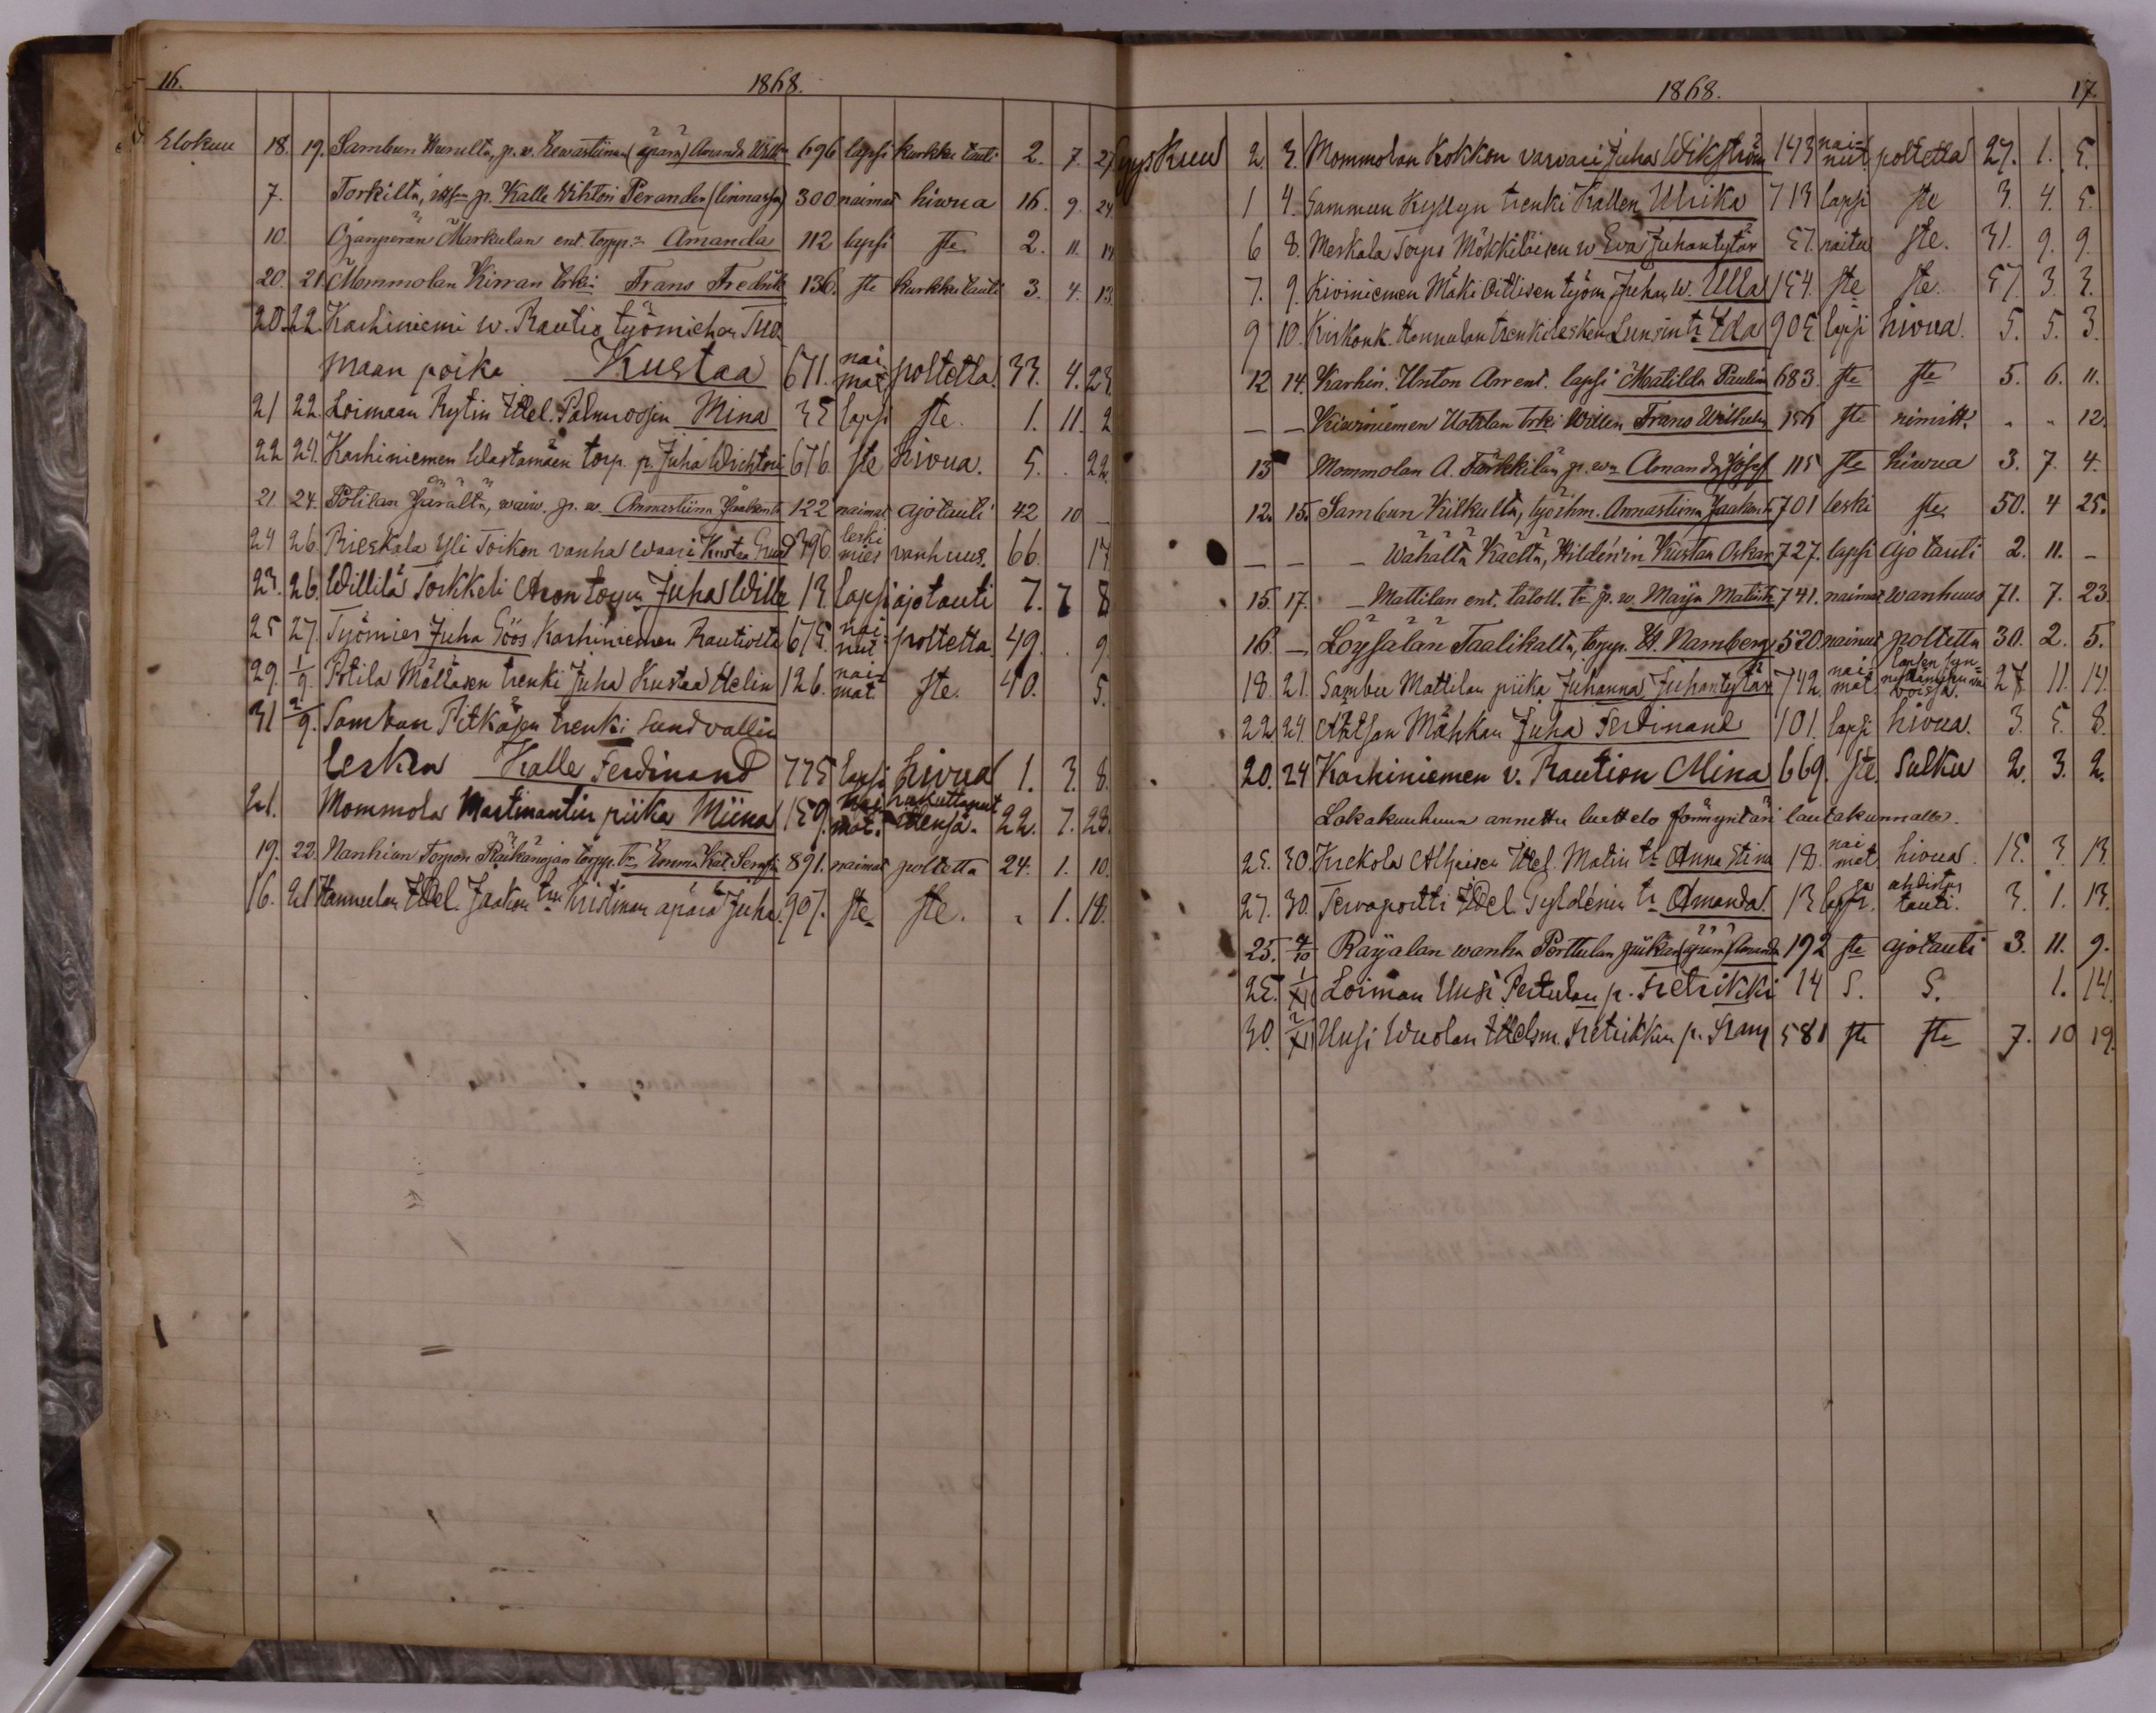 16. 1868.
Elokuu 18. 19. Sambun Hunulta, p. w. Eewastiinan (äpärä) Amanda 696 lapsi kurkku tauti 2. 7. 27
7. Torkilta, p. Kalle Vihtori Perander (linnassa) 300 naimat hiwua 16. 9. 24.
10. Ojanperän Markulan ent. torpp. Amanda 112 lapsi ste 2. 11. 14
20. 21. Mommolan Kirran Frans Fredrik 136. ste kurkku tauti 3. 4. 13.
20. 22. Karhiniemi w. Rautio työmiehen Tuo.
maan poika Kustaa 671. nai mat poltetta. 33. 4. 23.
21 22. Loimaan Rytin Ittel. Palmroosin Mina 35 lapsi ste. 1. 11. 2
22 24. Karhiniemen Wastamäen torp. p. Juha Wichtori 676. ste hiwua. 5. . 22.
21. 24. Potilan Järältä, waiw. p. w. Annastiina Jaakont. 122 naimat ajotauti 42 10 –
24 26. Rieskala Yli Toikon vanha waari Kustaa 396. leski mies vanhuus. 66. 17
23. 26. Willilä Torkkeli Aron torpp. Juha Wille 13. lapsi ajotauti 7. 7 8
25 27. Työmies Juha Göös Karhiniemen Rautiosta 675. nai nut poltetta. 49. . 9.
29. 1/9. Potila Mälläsen trenki Juha Kustaa Helin 126. nai- mat ste. 40. 5.
31 2/9. Sambun Pitkäsen trenki Sundvallin
lesken Kalle Ferdinand 775 lapsi hiwua 1. 3. 8.
21. Mommola Mastinantin piika Miina 159. nai mat. hukuttanut itsensä. 22. 7. 28.
19. 22. Nanhian Torpon Räikänojan torpp. tr. Emma Kat. Serafia 891. naimat poltetta 24. 1. 10.
16. 21 Hannulan Ittel. Jaakon trn Kristinan äpärä Juha. 907. ste ste. „ 1. 18.
1868. 17.
Syyskuu 2. 3. Mommolan Kokkon varvari Juha Wikström 143 nai- nut. poltetta 27. 1. 5.
1 4. Sammun Kyllyn trenki Kallen Ulrika 713 lapsi ste 3. 4. 5.
6 8. Meskala Torpo Mökkiläisen w Eva Juhantytär 57. naitu ste. 31. 9. 9.
7. 9. Kiviniemen Mäki Oitlisen työm. Juhan w. Ulla 154. ste ste. 57. 3. 3.
9 10. Kirkonk. Hannulan trenkilesken tr Ida 905 lapsi hiwua. 5. 5. 3.
12 14. Karhin. Unton Arrent. lapsi Matilda Paulin 683. ste ste 5. 6. 11.
– – Kiwiniemen Uotilan Willen Frans Wilhelm 156 ste nimitt. „ „ 12.
13 Mommolan A. Tärkkilän p. w. Amanda Josef. 115 ste hiwua 3. 7. 4.
12. 15. Sambun Kilkulta, työihm. Annastiina Jaakont. 701 leski ste 50. 4 25.
– – – Wähältä Kaeltä, Hilden'in Kustan Oskar 727. lapsi ajotauti 2. 11. –
15. 17. – Mattilan ent. taloll. tr p. w. Maija Matint. 741. naimat wanhuus 71. 7. 23.
16. – Löysälän Taalikalta, torpp. W. Namberg 520. nainut poltetta 30. 2. 5.
18. 21. Sambu Mattilan piika Juhanna Juhantytär 742. nai- mat lapsen syn- nyttämisen voissa. 27 11. 14.
22. 24. Mähkan Juha Ferdinand 101. lapsi hiwua. 3. 5. 8.
20. 24 Karhiniemen v. Raution Mina 669. ste. Sulku 2. 3. 2.
Lokakuuhuun annettu luettelo lautakunnalle.
25. 30. Krekola Alhaisen Ittel. Matin tr Anna Stina 18. nai mat hiwua. 15. 3. 13.
27. 30. Tervaportti Ittel. Gyldénin tr Amanda. 13 lapsi. ahdistus tauti. 3. 1. 13.
25. 4/10 Raijalan wanha Perttulan piikan (äpärä) Amanda 192 ste ajotauti 3. 11. 9.
25. 1/XI Loiman Uusi Pertulan p. Fretrikki 14 S. S. 1. 14.
30. 2/XI Uusi Wuolan Ittelsm. Fretrikkin p. Frans 581 ste ste 7. 10 19.